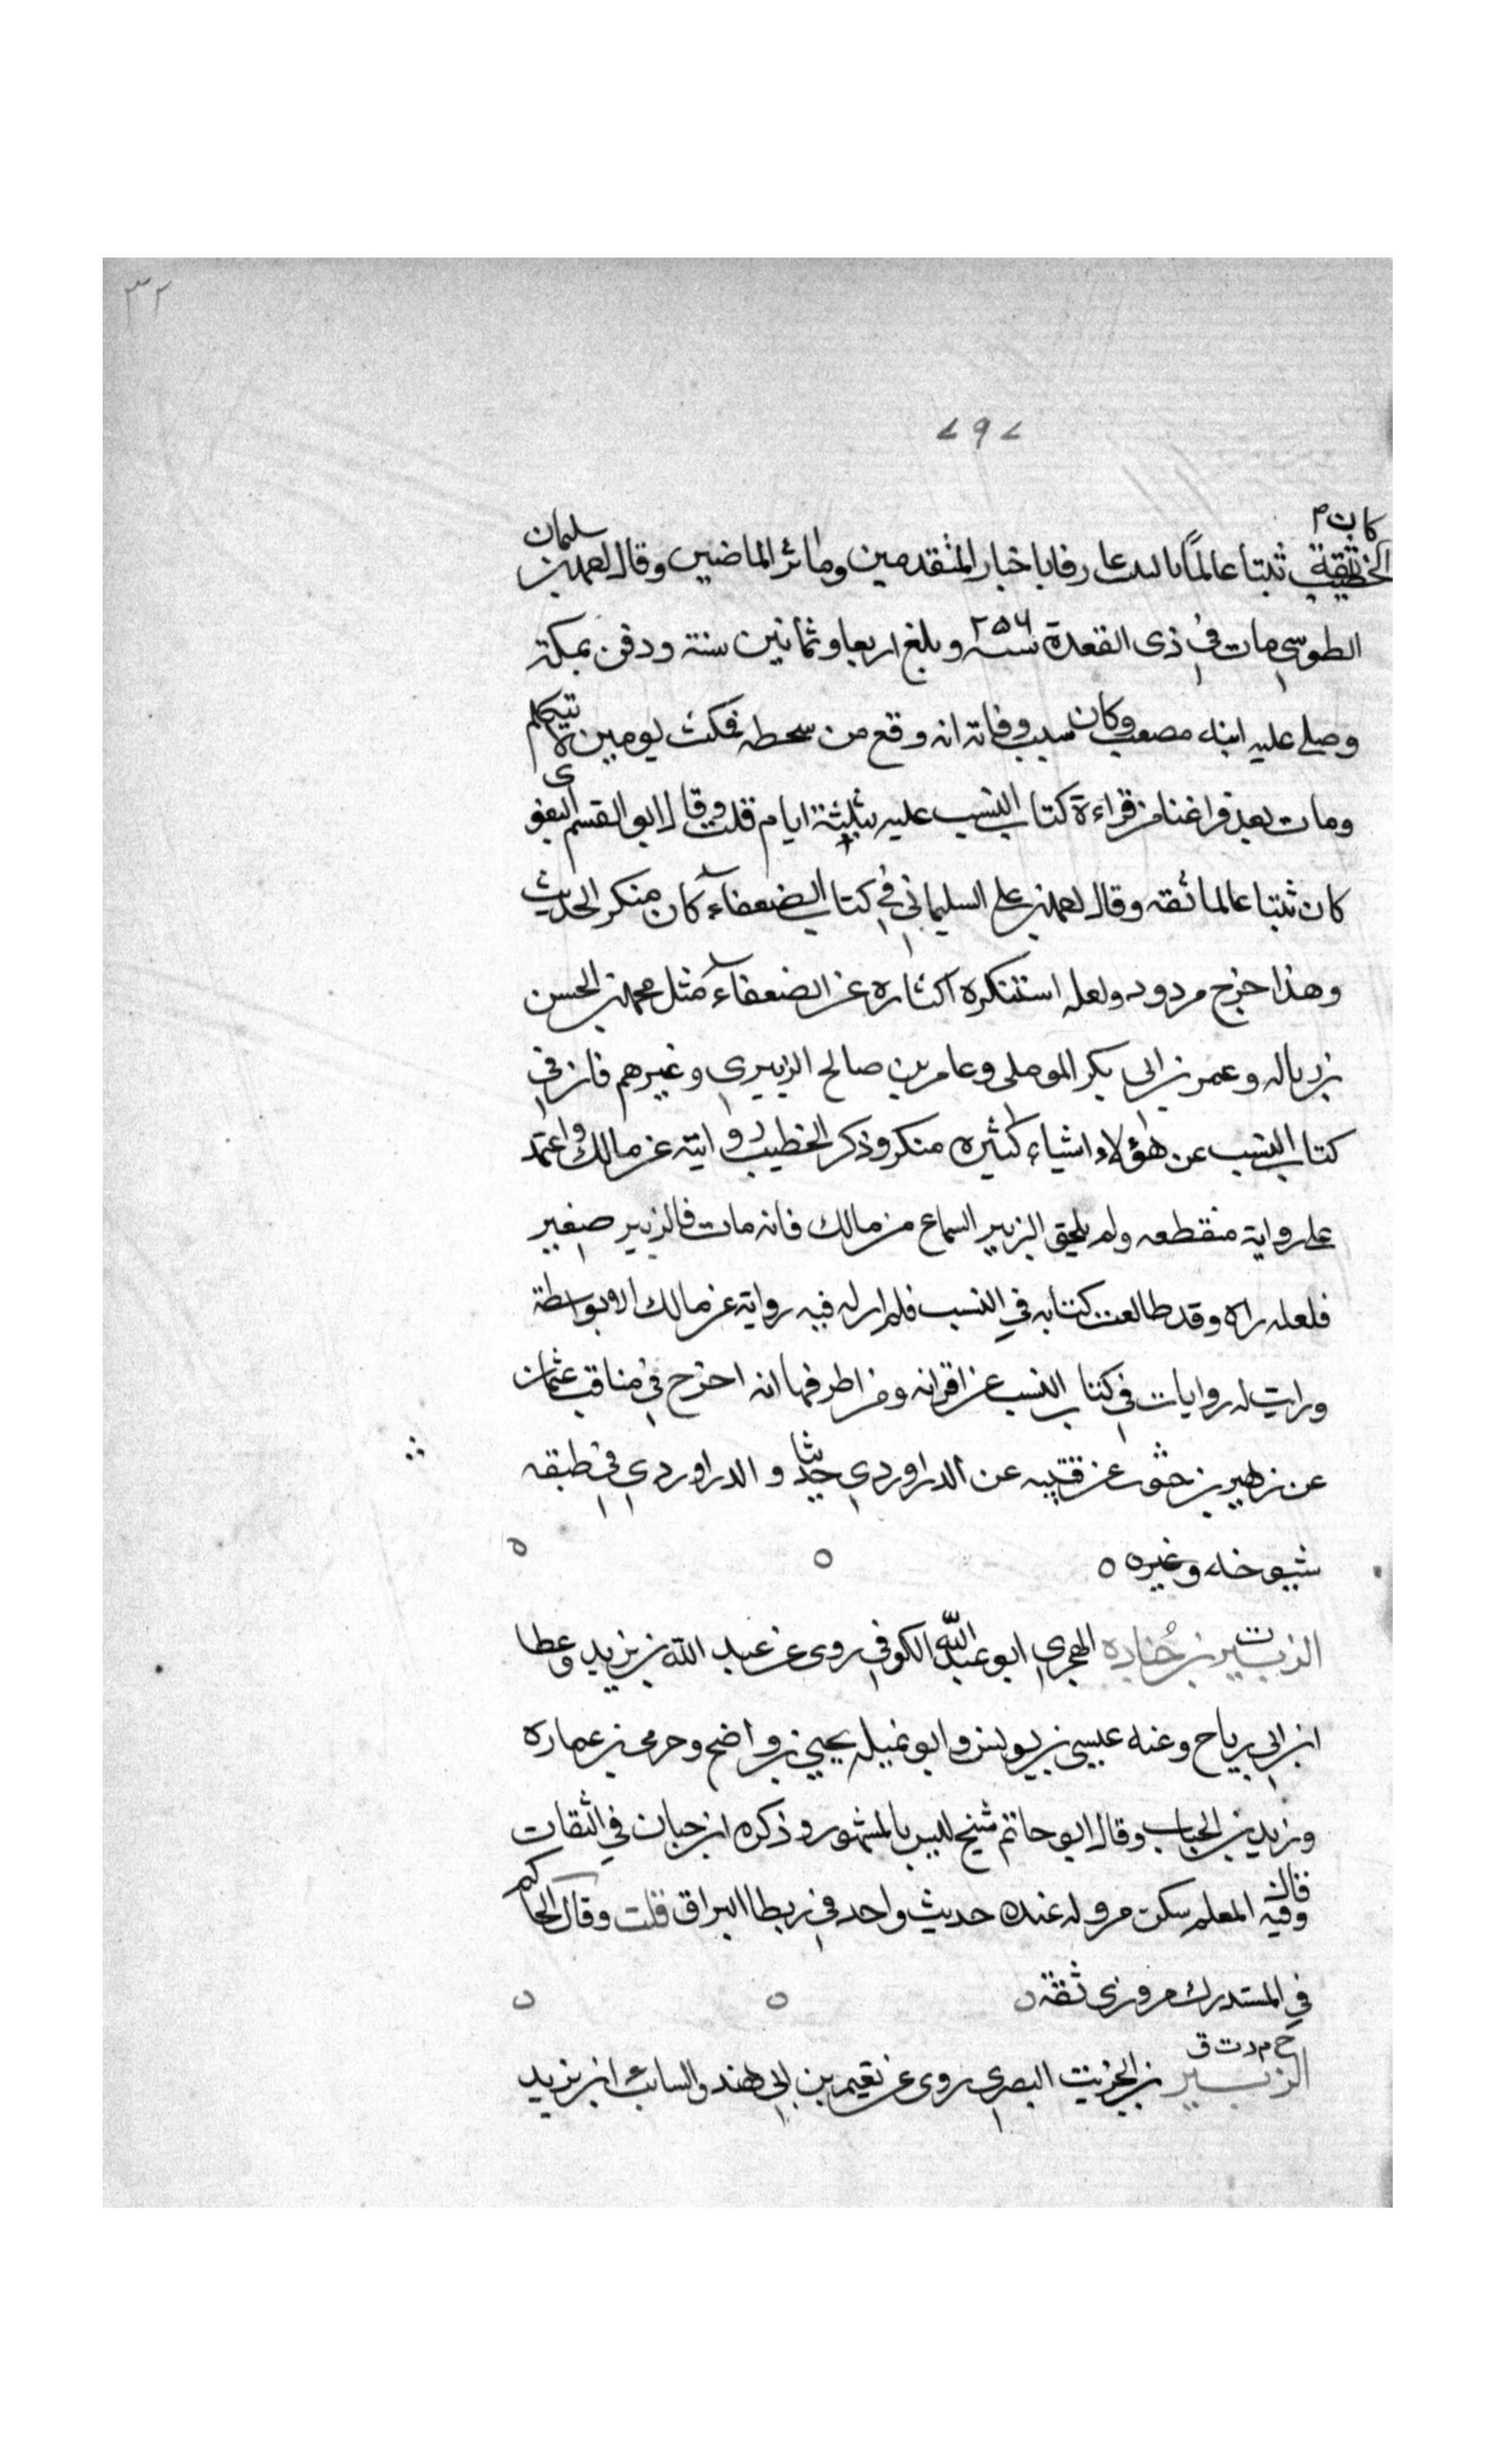 ٣٢
٢٩٢
الخطيب كان ثقة ثبتا عالما بالنسب عارفا باخبار المتقدمين ومآثر الماضين وقال احمد بن سليمان
الطوسي مات في ذى القعدة سنة ٢٥٦ وبلغ اربعا وثمانين سنة ودفن بمكة
وصلى عليه ابنه مصعب وكان سبب وفاته انه وقع من سطحه فمكث يومين لا يتكلم
ومات بعد فراغنا من قراءة كتاب النسب عليه بثلثة ايام قلت وقال ابو القسم البغوى
كان ثبتا عالما ثقه وقال احمد بن على السليماني في كتاب الضعفاء كان منكر الحديث
وهذا جرح مردود ولعله استنكره اكثاره عن الضعفاء مثل محمد بن الحسن
بن زباله وعمر بن ابى بكر الموصلى وعامر بن صالح الزبيري وغيرهم فان في
كتاب النسب عن هؤلاء اشياء كثيره منكر وذكر الخطيب روايته عن مالك واعتمد
على رواية منقطعه ولم يلحق الزبير السماع من مالك فانه مات فالزبير صغير
فلعله راه وقد طالعت كتابه في النسب فلم ار له فيه رواية عن مالك الا بواسطة
ورايت له روايات في كتاب النسب عن اقرانه ومن اطرفها انه اخرج في مناقب عثمان
عن زهير بن حرب عن قتيبه عن الدراوردي حديثا و الدراوردي في طبقه
شيوخه وغيره ه ه ه
ت الزبير بن جُناده الهجري ابو عبد الله الكوفي روى عن عبد الله بن بزيد وعطا
ابن ابي رباح وعنه عيسى بن يونس وابو تميله يحيى بن واضح وحرمى بن عماره
وزيد بن الحباب وقال ابو حاتم شيخ ليس بالمشهور وذكره ابن حبان في الثقات
وقال فيه المعلم سكن مرو له عنده حديث واحد في ربط البراق قلت وقال الحاكم
في المستدرك مروزى ثقة ه ه ه
خ م د ت ق
الزبير بن الخريت البصري روى عن نعيم بن ابي هند والسائب ابن يزيد